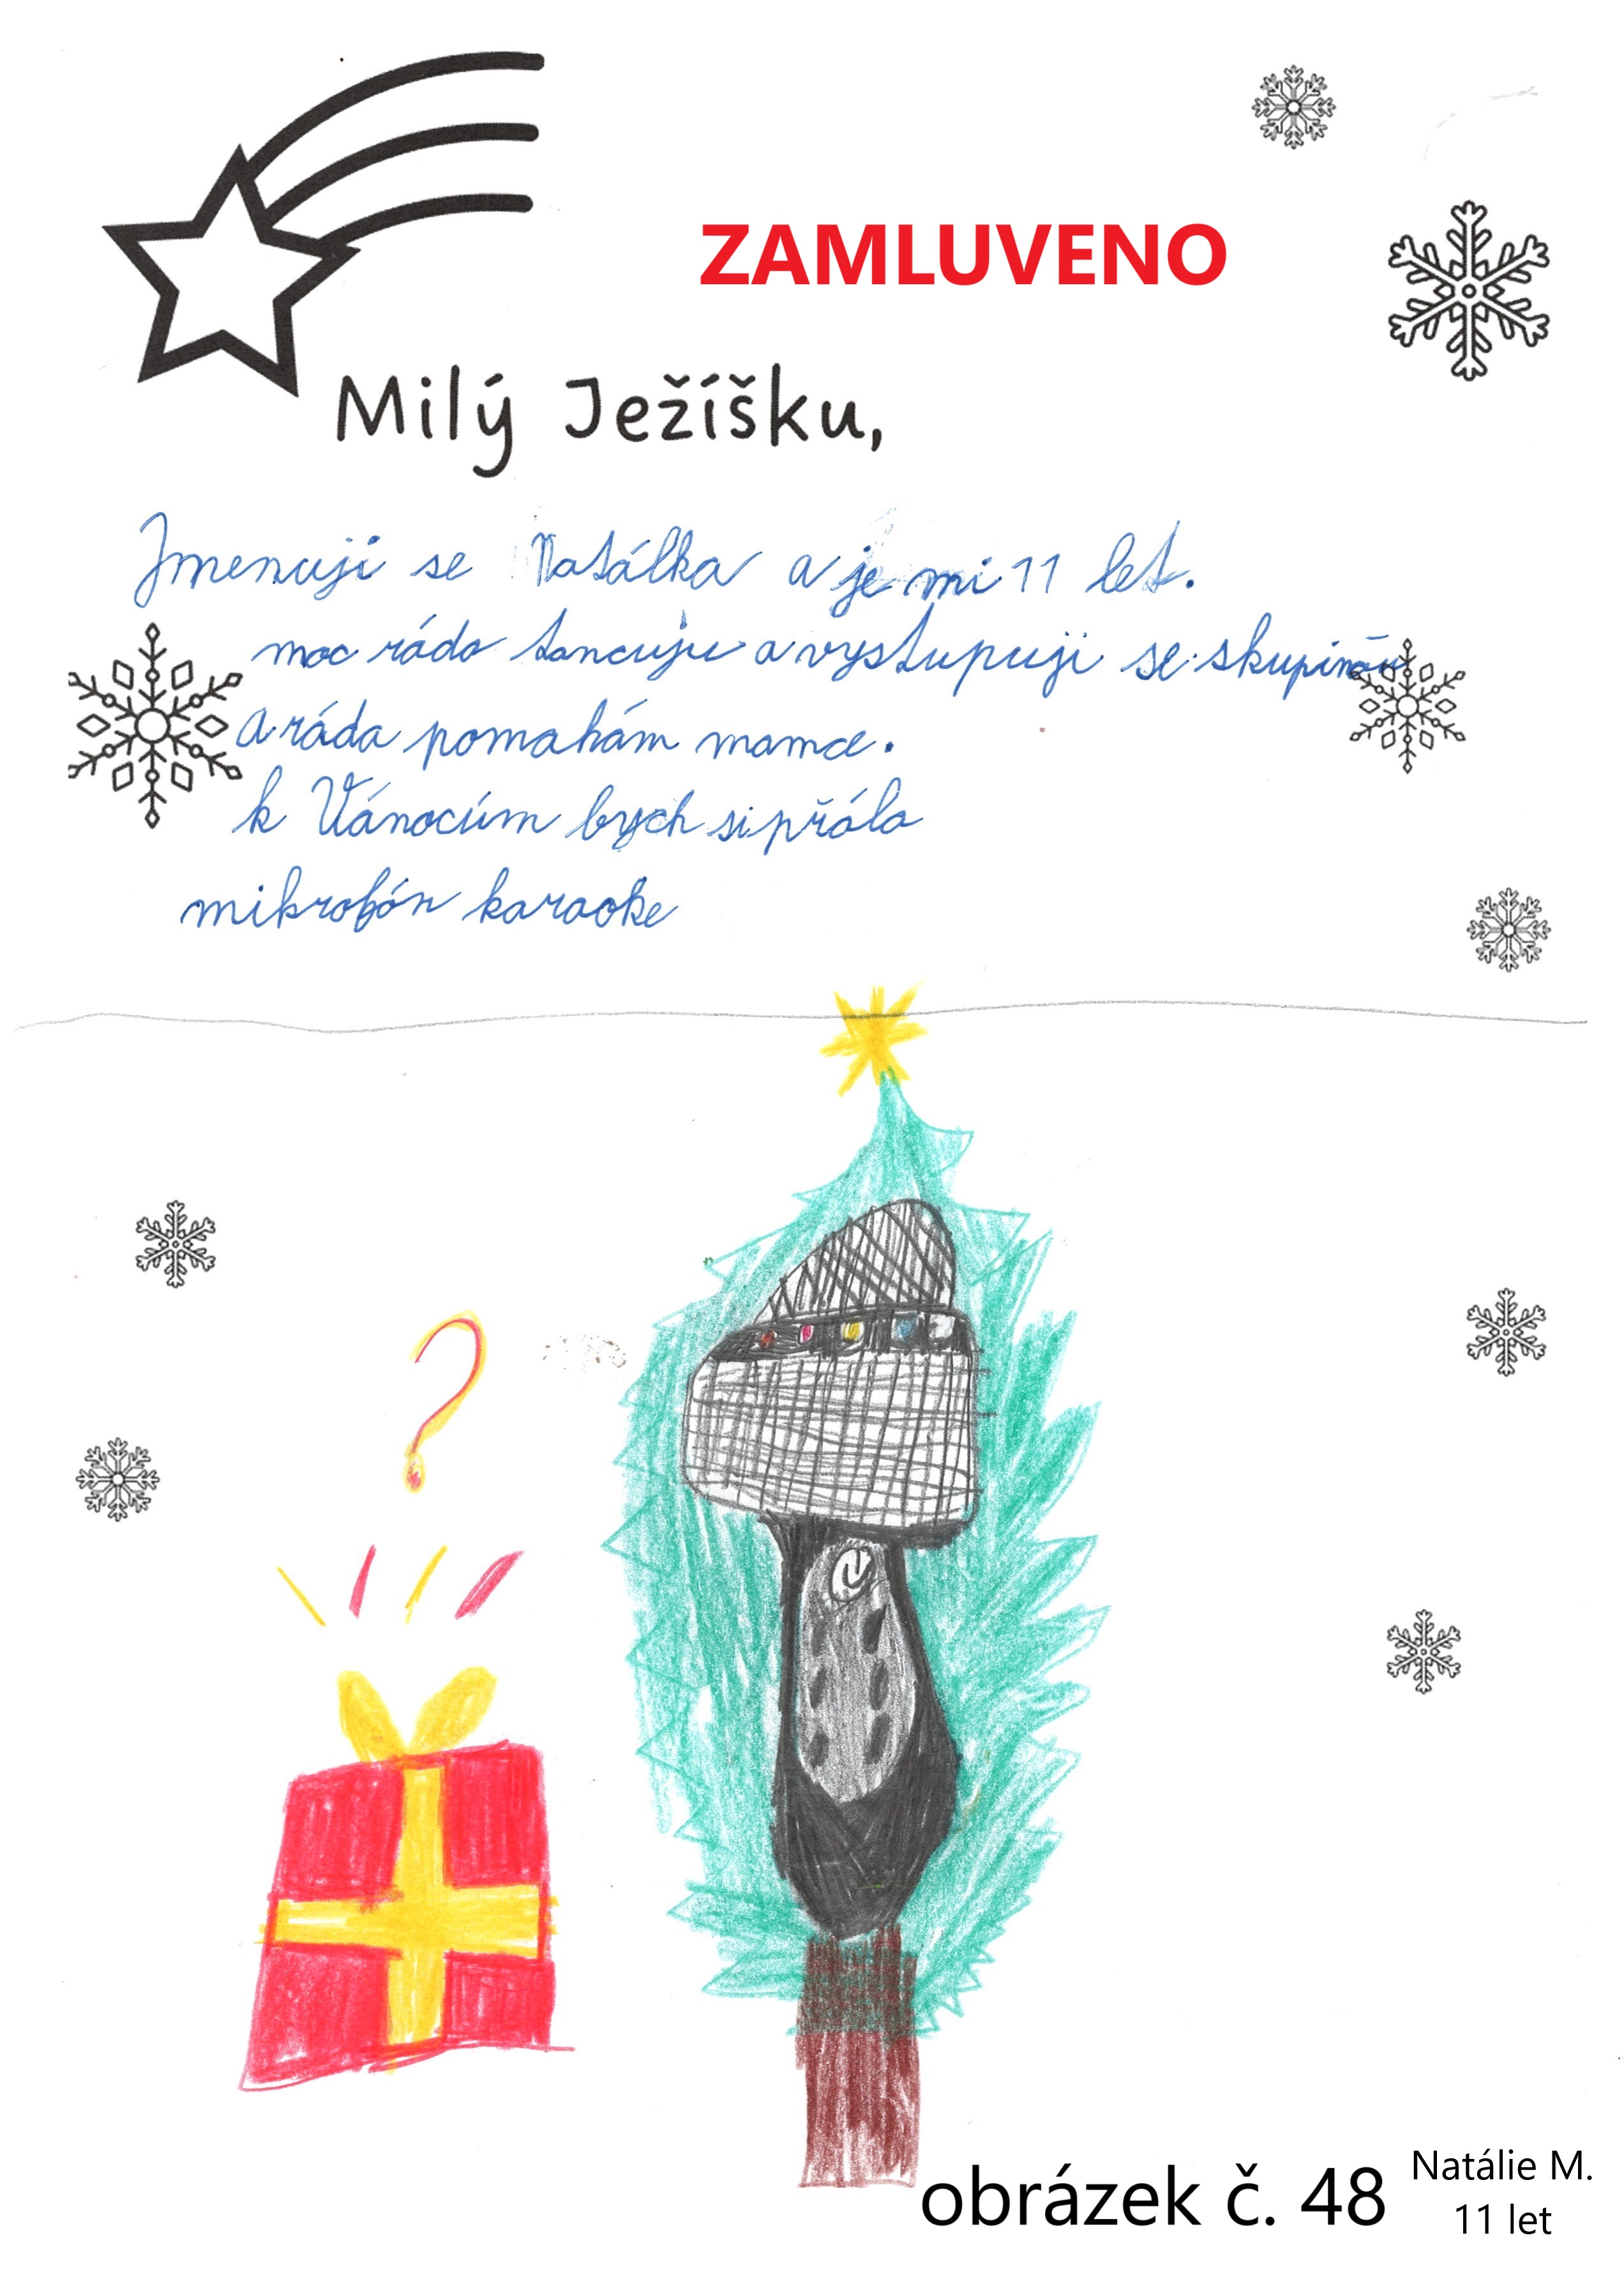 ZAMLUVENO
Milý Ježíšku,
Jmenuji se Natálka a je mi 11 let.
moc ráda tancuju a vystupuji se skupinou
a ráda pomahám mamce.
k Vánocům bych si přála
mikrofón karaoke
?
obrázek č. 48
Natálie M.
11 let